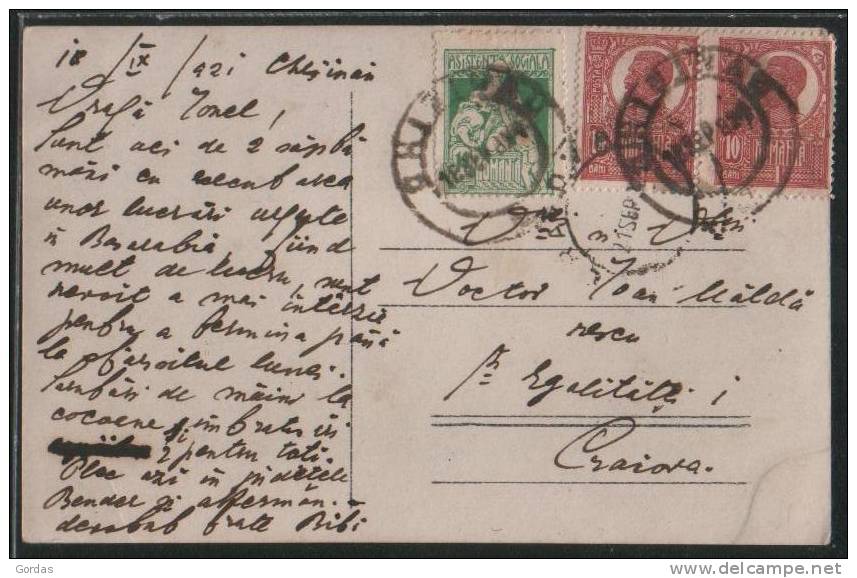 18/IX/921 Chișinău
Dragă Ionel,
Sunt aci de 2 săptă
mâni cu executarea
unor lucrări urgente
în Basarabia fiind
mult de lucru, sunt
nevoit a mai întârzia
pentru a termina până
la sfârșitul lunei.
Sărutări de mâini la
cocoane și îmbrățișeri
pentru toți.
Plec azi în județele
Bender și Akkerman.
frate Bibi
ASISTENTA SOCIALA
POSTA
ROMANIA
10 BANI
CHISINAU
18 SEP 921
CRAIOVA
21 SEP
Doctor Ioan Măldă
rescu
Str Egalităței 1
Craiova.
Gordas
delcampe.net